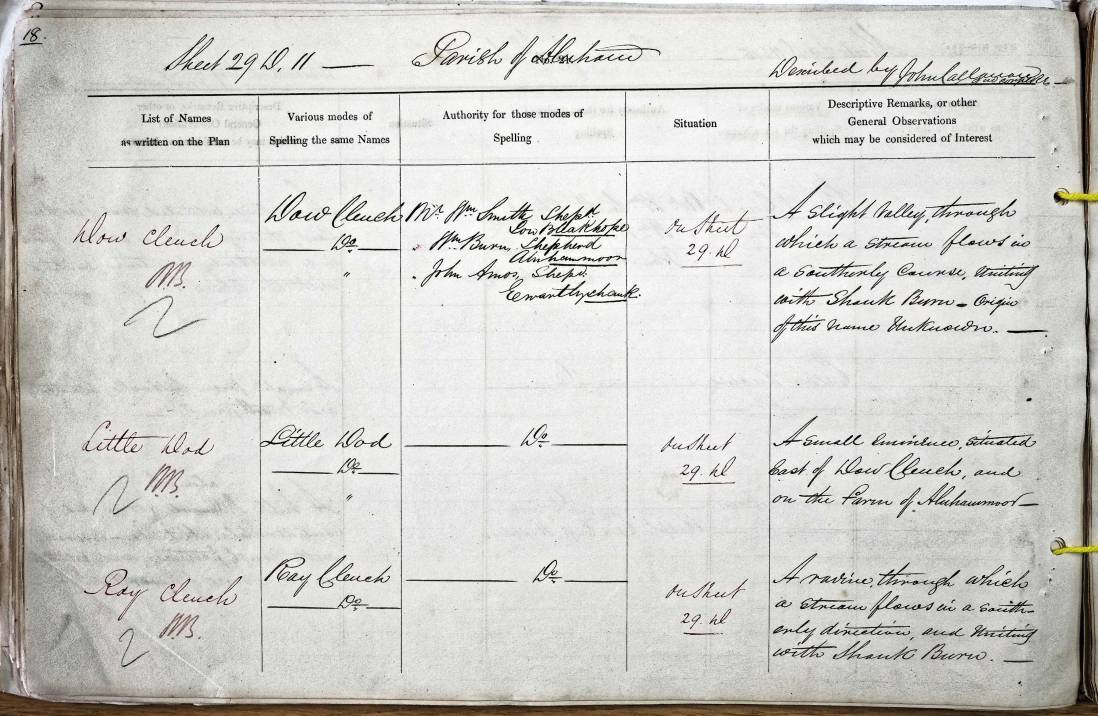 18.
Sheet 29 D. 11 — Parish of Alnham
Described by John
List of Names
as written on the Plan
Various modes of
Spelling the same Names
Authority for those modes of
Spelling
Situation
Descriptive Remarks, or other
General Observations
which may be considered of Interest
Dow Cleuch
Dow Cleuch
Do
"
Mr. Wm Smith, Shepd.
Low Bleakhope
" Wm Burn, Shepherd
Alnhammoor
" John Amos, Shepd.
Ewartlyshank.
on Sheet
29.
A slight Valley, through
which a stream flows in
a Southerly Course, Uniting
with Shank Burn – Origin
of this name Unknown. —
Little Dod
Little Dod
Do
"
Do
on Sheet
29.
A small eminence, situated
East of Dow Cleuch, and
on the Farm of Alnhammoor —
Ray Cleuch
Ray Cleuch
Do
Do
on Sheet
29.
A ravine, through which
a stream flows in a south-
erly direction, and Uniting
with Shank Burn. —